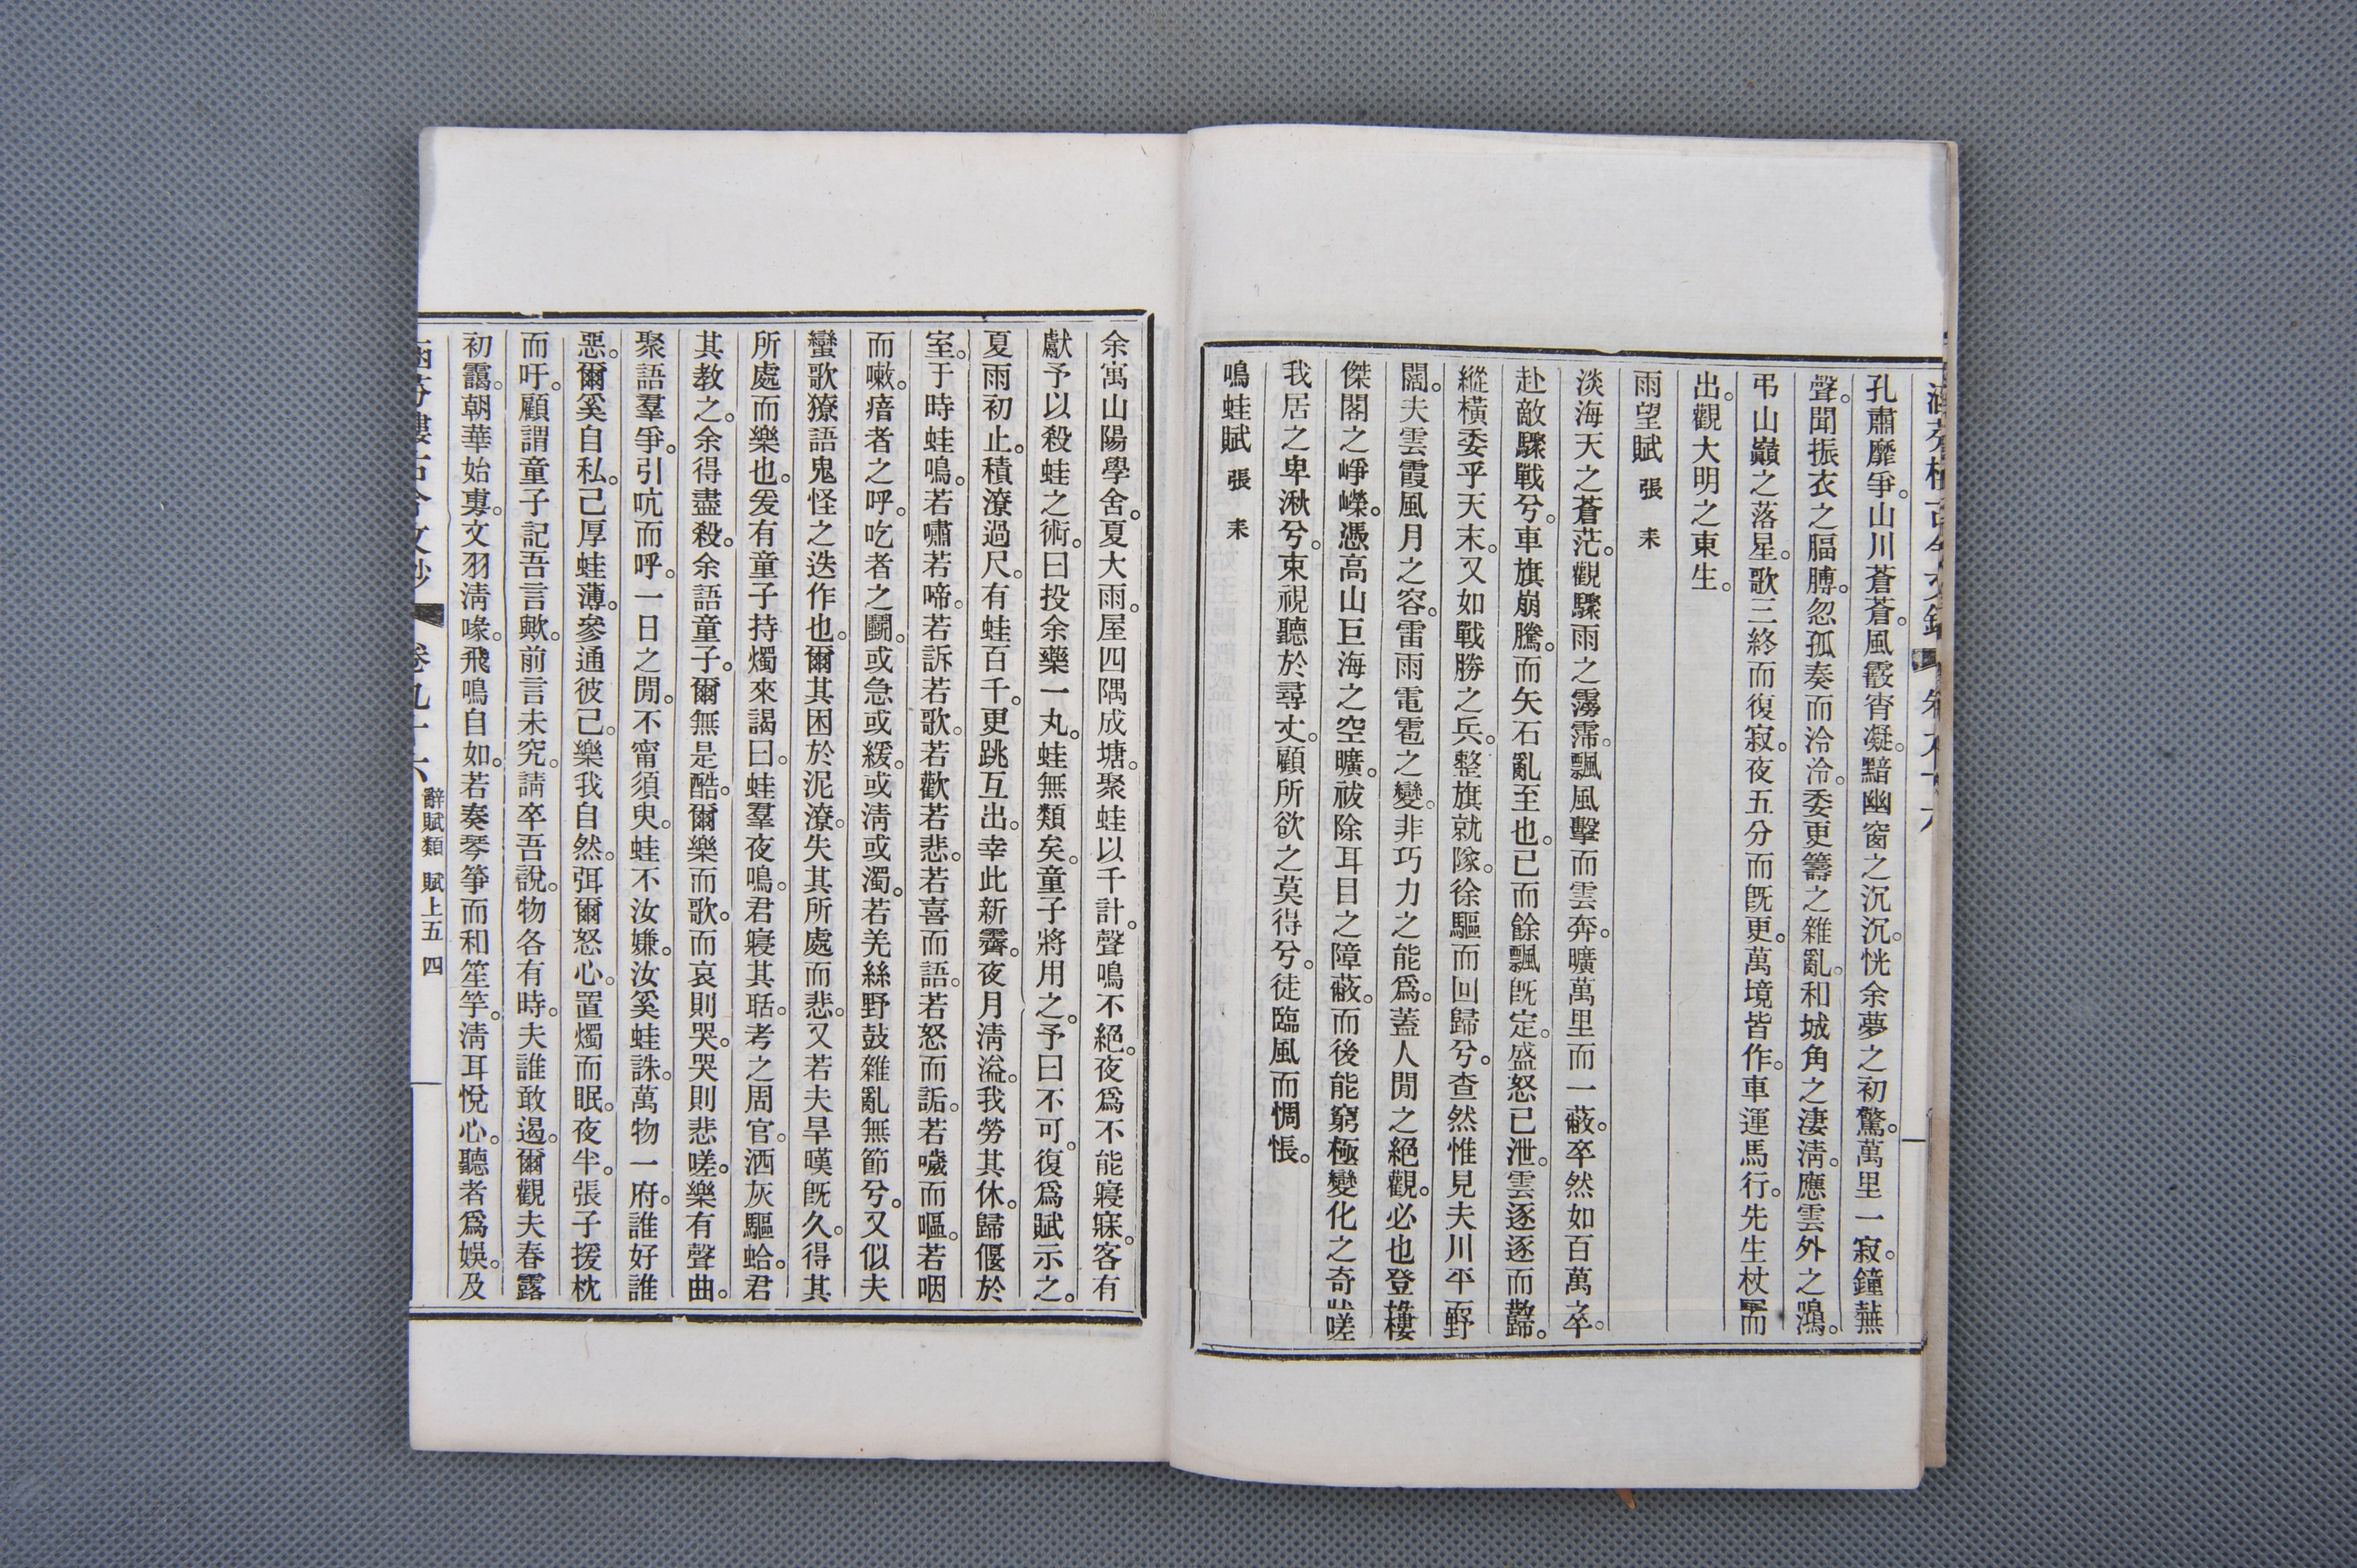 孔肅靡爭。山川蒼蒼。風霰宵凝。黯幽窗之沉沉。恍余夢之初驚。萬里一寂。鐘蕪
聲。聞振衣之腷膊。忽孤奏而泠泠。委更籌之雜亂。和城角之淒淸。應雲外之鴻。
弔山巓之落星。歌三終而復寂。夜五分而旣更。萬境皆作。車運馬行。先生杖屨而
出。觀大明之東生。
雨望賦 張耒
淡海天之蒼茫。觀驟雨之霶霈。飄風擊而雲奔。曠萬里而一蔽。卒然如百萬之卒。
赴敵驟戰兮。車旗崩騰。而矢石亂至也。已而餘飄旣定。盛怒已泄。雲逐逐而散歸。
縱橫委乎天末。又如戰勝之兵。整旗就隊。徐驅而回歸兮。杳然惟見夫川平而野
闊。夫雲霞風月之容。雷雨電雹之變。非巧力之能爲。蓋人閒之絕觀。必也登樓
傑閣之崢嶸。憑高山巨海之空曠。祓除耳目之障蔽。而後能窮極變化之奇狀。嗟
我居之卑湫兮。束視聽於尋丈。顧所欲之莫得兮。徒臨風而惆悵。
鳴蛙賦 張耒
余寓山陽學舍。夏大雨。屋四隅成塘。聚蛙以千計。聲鳴不絕。夜爲不能寢寐。客有
獻予以殺蛙之術。曰投余藥一丸。蛙無類矣。童子將用之。予曰不可。復爲賦示之。
夏雨初止。積潦過尺。有蛙百千。更跳互出。幸此新霽。夜月淸溢。我勞其休。歸偃於
室。于時蛙鳴。若嘯若啼。若訴若歌。若歡若悲。若喜而語。若怒而詬。若噦而嘔。若咽
而嗽。瘖者之呼。吃者之鬬。或急或緩。或淸或濁。若羌絲野鼓雜亂無節兮。又似夫
蠻歌獠語鬼怪之迭作也。爾其困於泥潦。失其所處而悲。又若夫旱暵旣久。得其
所處而樂也。爰有童子持燭來謁曰。蛙羣夜鳴。君寢其聒。考之周官。洒灰驅蛤。君
其教之。余得盡殺。余語童子。爾無是酷。爾樂而歌。而哀則哭。哭則悲嗟。樂有聲曲。
聚語羣爭。引吭而呼。一日之閒。不甯須臾。蛙不汝嫌。汝奚蛙誅。萬物一府。誰好誰
惡。爾奚自私。己厚蛙薄。參通彼己。樂我自然。弭爾怒心。置燭而眠。夜半。張子援枕
而吁。顧謂童子記吾言歟。前言未究。請卒吾說。物各有時。夫誰敢遏。爾觀夫春露
初靄。朝華始旉。文羽淸喙。飛鳴自如。若奏琴箏而和笙竽。淸耳悅心。聽者爲娛。及
涵芬樓古今文鈔 卷九十六 辭賦類 賦上五 四